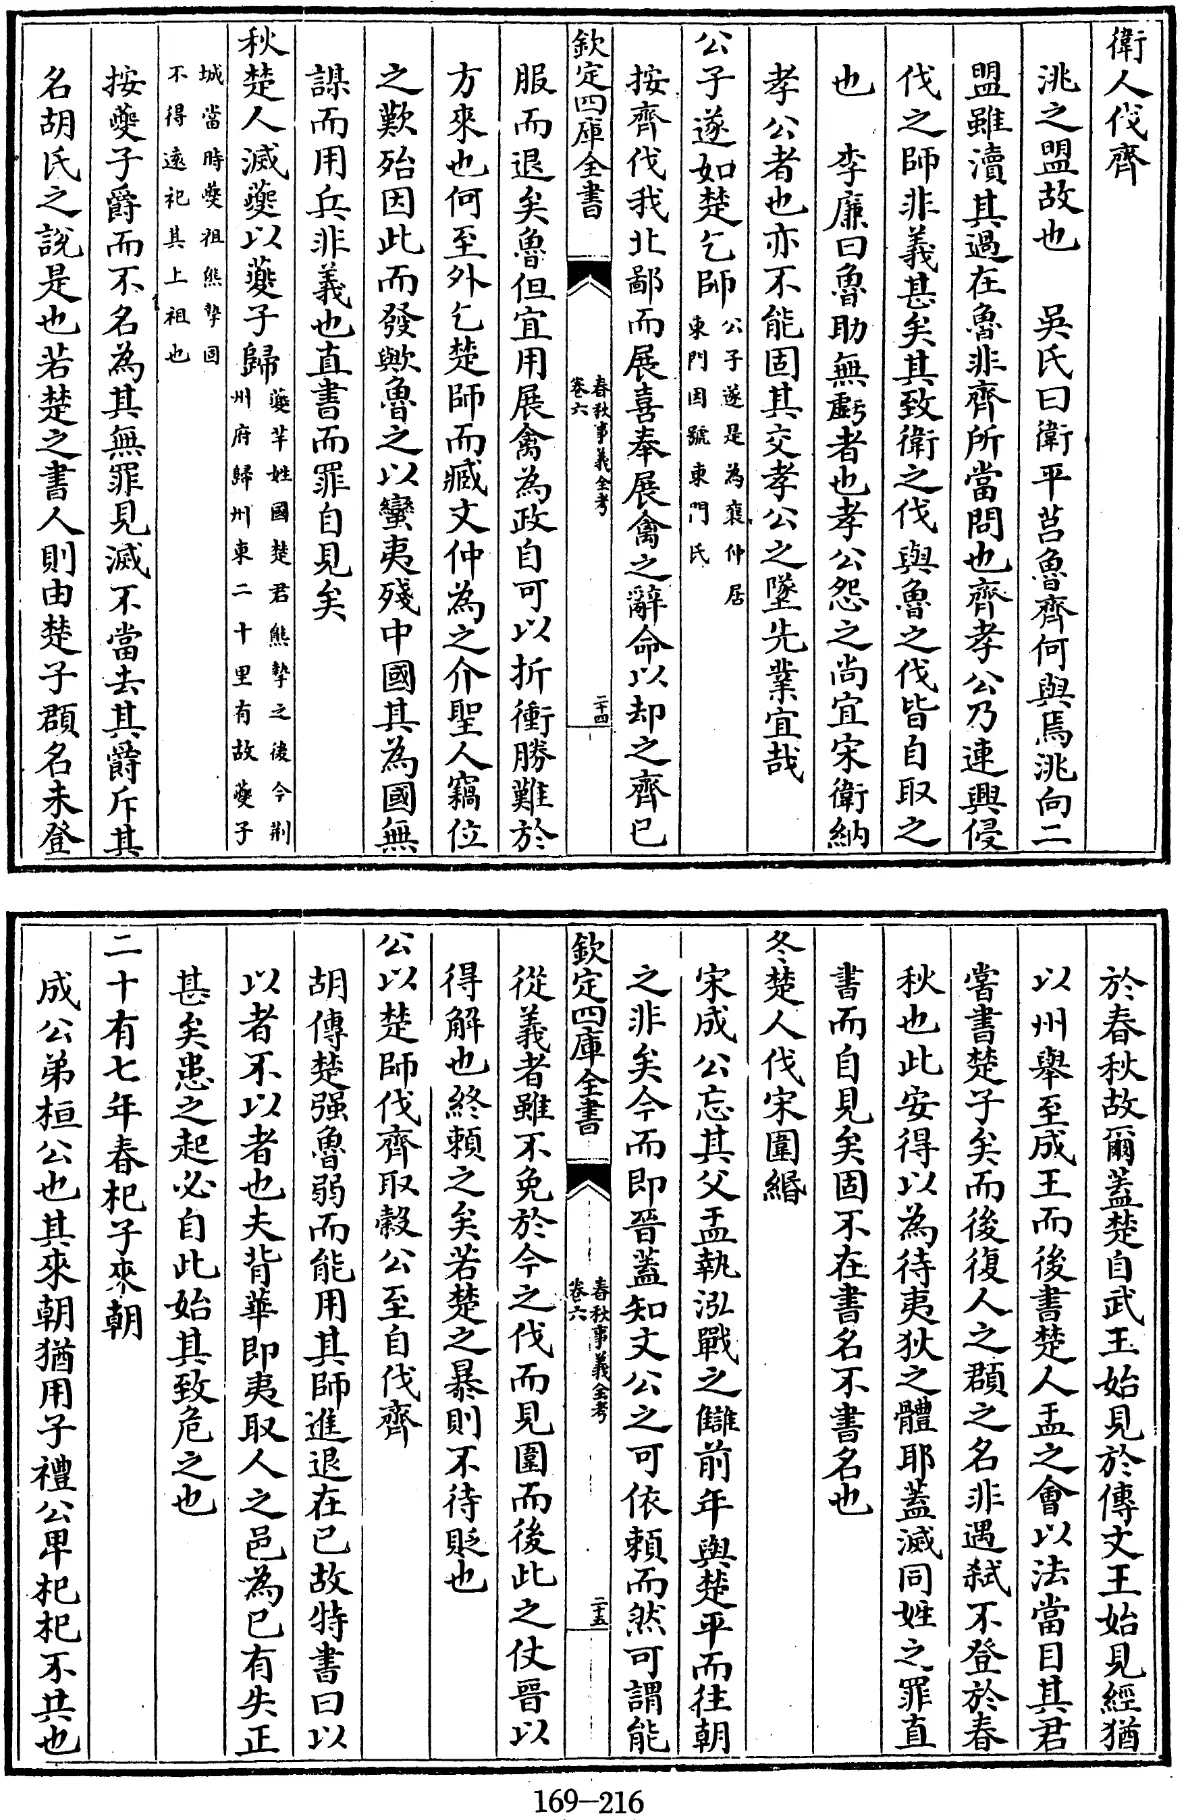 衛人伐齊
洮之盟故也　吳氏曰衛平莒魯齊何與焉洮向二
盟雖瀆其過在魯非齊所當問也齊孝公乃連興侵
伐之師非義甚矣其致衛之伐與魯之伐皆自取之
也　李廉曰魯助無虧者也孝公怨之尚宜宋衛納
孝公者也亦不能固其交孝公之墜先業宜哉
公子遂如楚乞師公子遂是為襄仲居
東門因號東門氏
按齊伐我北鄙而展喜奉展禽之辭命以却之齊已
欽定四庫全書
春秋事義全考
卷六
二十四
服而退矣魯但宜用展禽為政自可以折衝勝難於
方來也何至外乞楚師而臧文仲為之介聖人竊位
之歎殆因此而發歟魯之以蠻夷殘中國其為國無
謀而用兵非義也直書而罪自見矣
秋楚人滅夔以夔子歸夔羋姓國楚君熊摯之後今荆
州府歸州東二十里有故夔子
城當時夔祖熊摯固
不得遠祀其上祖也
按夔子爵而不名為其無罪見滅不當去其爵斥其
名胡氏之說是也若楚之書人則由楚子頵名未登
於春秋故爾蓋楚自武王始見於傳文王始見經猶
以州舉至成王而後書楚人盂之會以法當目其君
嘗書楚子矣而後復人之頵之名非遇弑不登於春
秋也此安得以為待夷狄之體耶蓋滅同姓之罪直
書而自見矣固不在書名不書名也
冬楚人伐宋圍緡
宋成公忘其父盂執泓戰之讎前年與楚平而往朝
之非矣今而即晉蓋知文公之可依賴而然可謂能
欽定四庫全書
春秋事義全考
卷六
二十五
從義者雖不免於今之伐而見圍而後此之仗晉以
得解也終賴之矣若楚之暴則不待貶也
公以楚師伐齊取穀公至自伐齊
胡傳楚强魯弱而能用其師進退在已故特書曰以
以者不以者也夫背華即夷取人之邑為已有失正
甚矣患之起必自此始其致危之也
二十有七年春杞子來朝
成公弟桓公也其來朝猶用子禮公卑杞杞不共也
169-216